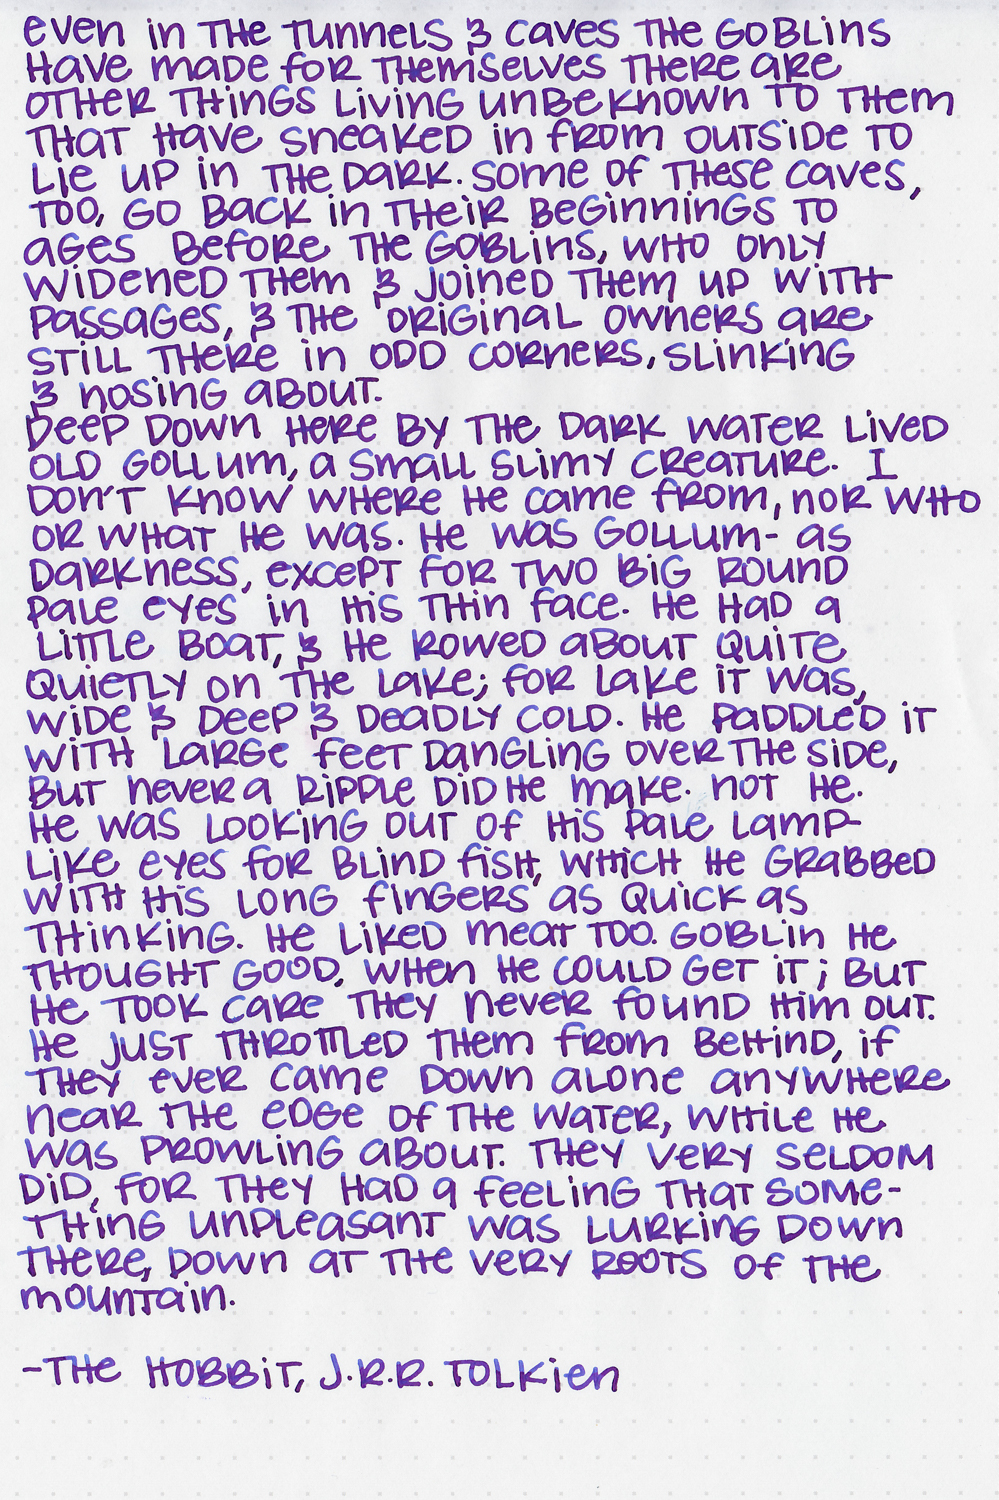 even in the tunnels & caves the goblins
have made for themselves there are
other things living unbeknown to them
that have sneaked in from outside to
lie up in the dark. Some of these caves,
too, go back in their beginnings to
ages before the goblins, who only
widened them & joined them up with
passages, & the original owners are
still there in odd corners, slinking
& nosing about.
Deep down here by the dark water lived
old Gollum, a small slimy creature. I
don't know where he came from, nor who
or what he was. He was Gollum- as
darkness, except for two big round
pale eyes in his thin face. He had a
little boat, & he rowed about quite
quietly on the lake; for lake it was,
wide & deep & deadly cold. He paddled it
with large feet dangling over the side,
but never a ripple did he make. Not he.
He was looking out of his pale lamp-
like eyes for blind fish, which he grabbed
with his long fingers as quick as
thinking. He liked meat too. Goblin he
thought good, when he could get it; but
he took care they never found him out.
He just throttled them from behind, if
they ever came down alone anywhere
near the edge of the water, while he
was prowling about. They very seldom
did, for they had a feeling that some-
thing unpleasant was lurking down
there, down at the very roots of the
mountain.
-The Hobbit, J.R.R. Tolkien